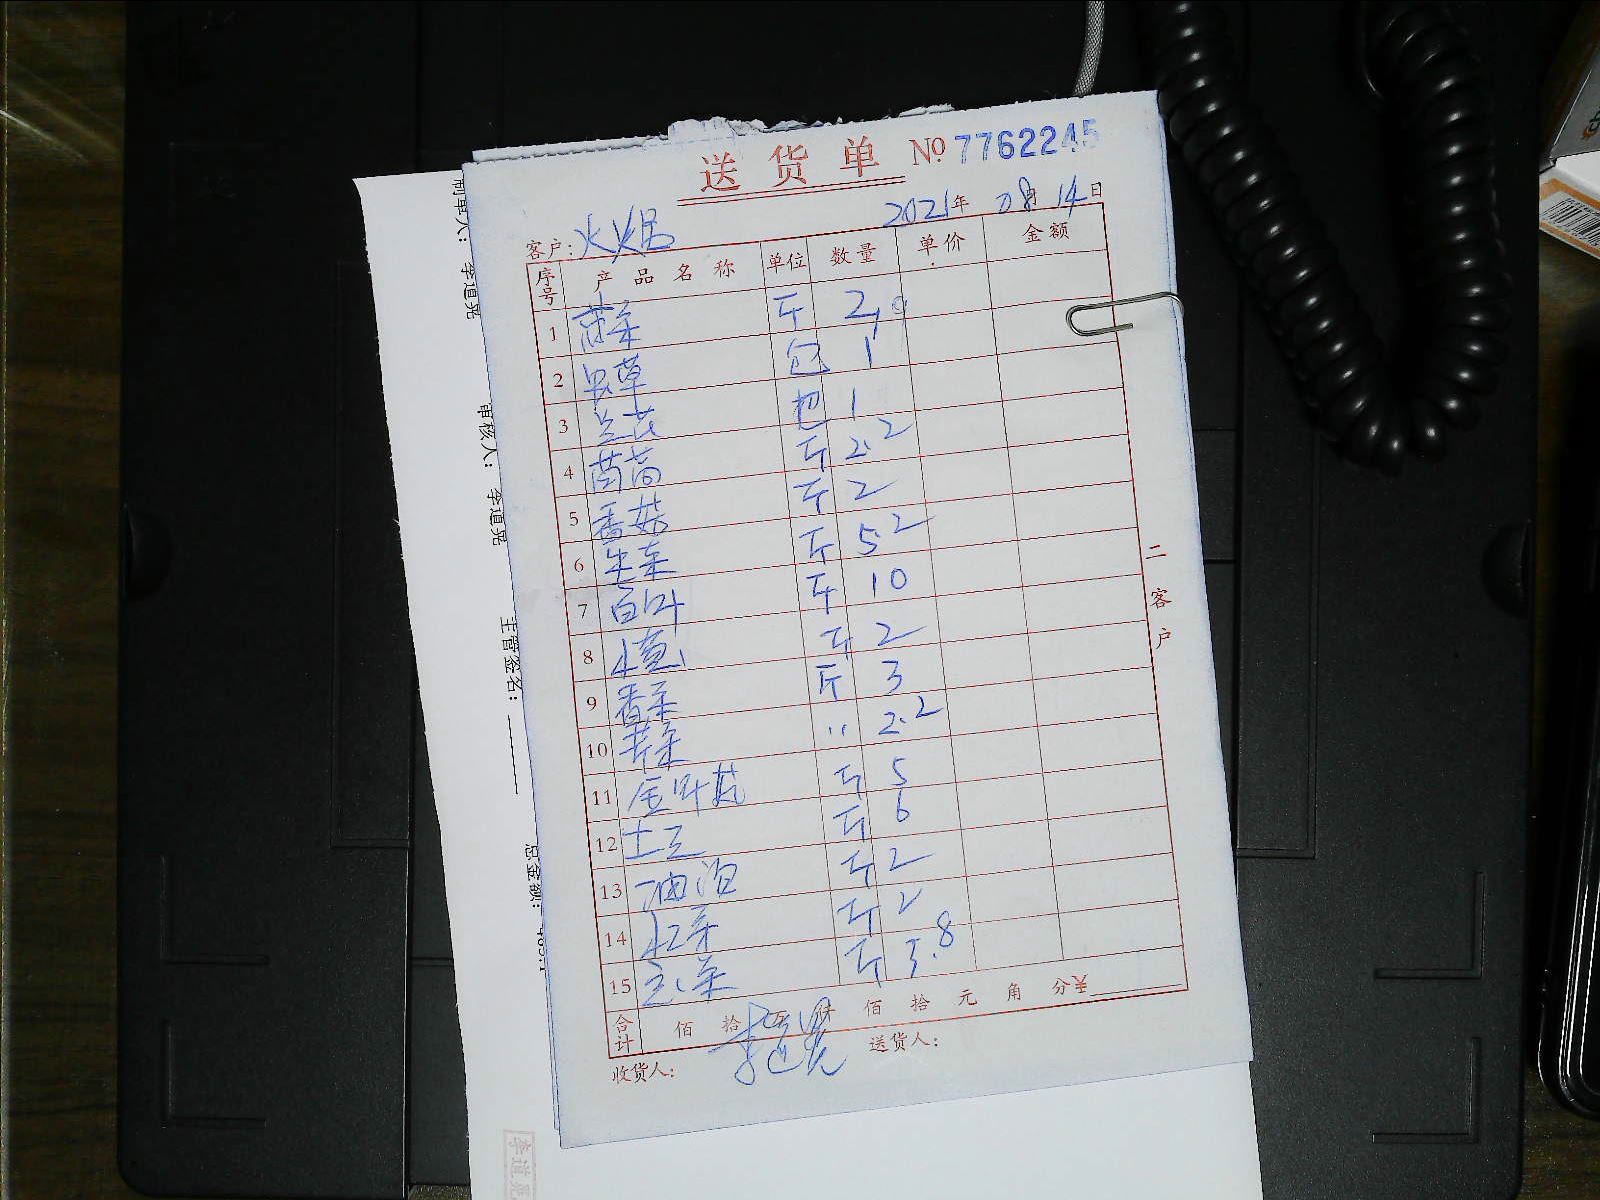 送货单 №7762245
客户: 火焰 2021年 08月 14日
序号 产品名称 单位 数量 单价 金额
1 斤 2.
2 虫草 包 1
3 兰花 把 1
4 茼蒿 斤 2.2
5 香菇 斤 2
6 生菜 斤 5.2
7 百叶 斤 10
8 斤 2
9 香菜 斤 3
10 芹菜 〃 2.2
11 斤 5
12 土豆 斤 6
13 油泊 斤 2
14 斤 2
15 斤 3.8
合计 佰 拾 万 仟 佰 拾 元 角 分¥
收货人: 李道晃 送货人:
二客户
制单人: 李道晃
审核人: 李道晃
主管签名:
总金额:
李道晃